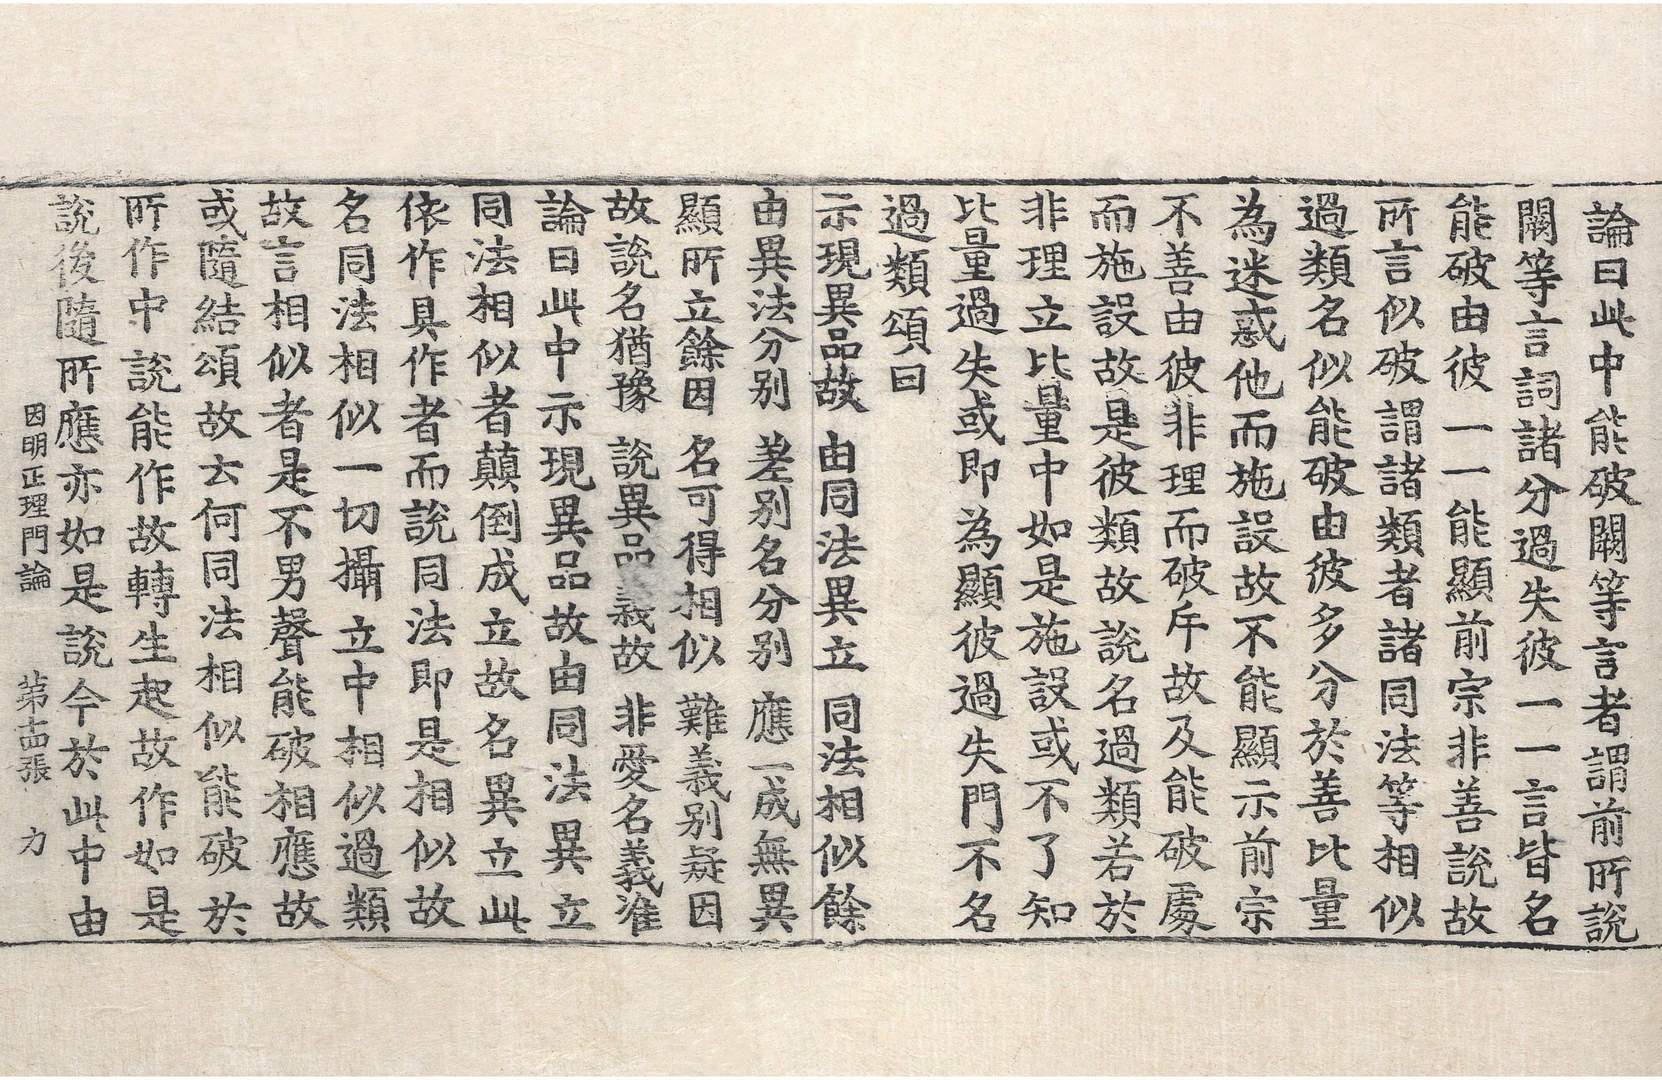 論曰此中能破闕等言者謂前所說
闕等言詞諸分過失彼一一言皆名
能破由彼一一能顯前宗非善說故
所言似破謂諸類者諸同法等相似
過類名似能破由彼多分於善比量
為迷惑他而施設故不能顯示前宗
不善由彼非理而破斥故及能破處
而施設故是彼類故說名過類若於
非理立比量中如是施設或不了知
比量過失或即為顯彼過失門不名
過類頌曰
示現異品故 由同法異立 同法相似餘
由異法分別 差別名分別 應一成無異
顯所立餘因 名可得相似 難義別疑因
故說名猶豫 說異品義故 非愛名義准
論曰此中示現異品故由同法異立
同法相似者顛倒成立故名異立此
依作具作者而說同法即是相似故
名同法相似一切攝立中相似過類
故言相似者是不男聲能破相應故
或隨結頌故云何同法相似能破於
所作中說能作故轉生起故作如是
說後隨所應亦如是說今於此中由
因明正理門論 第十四張 力